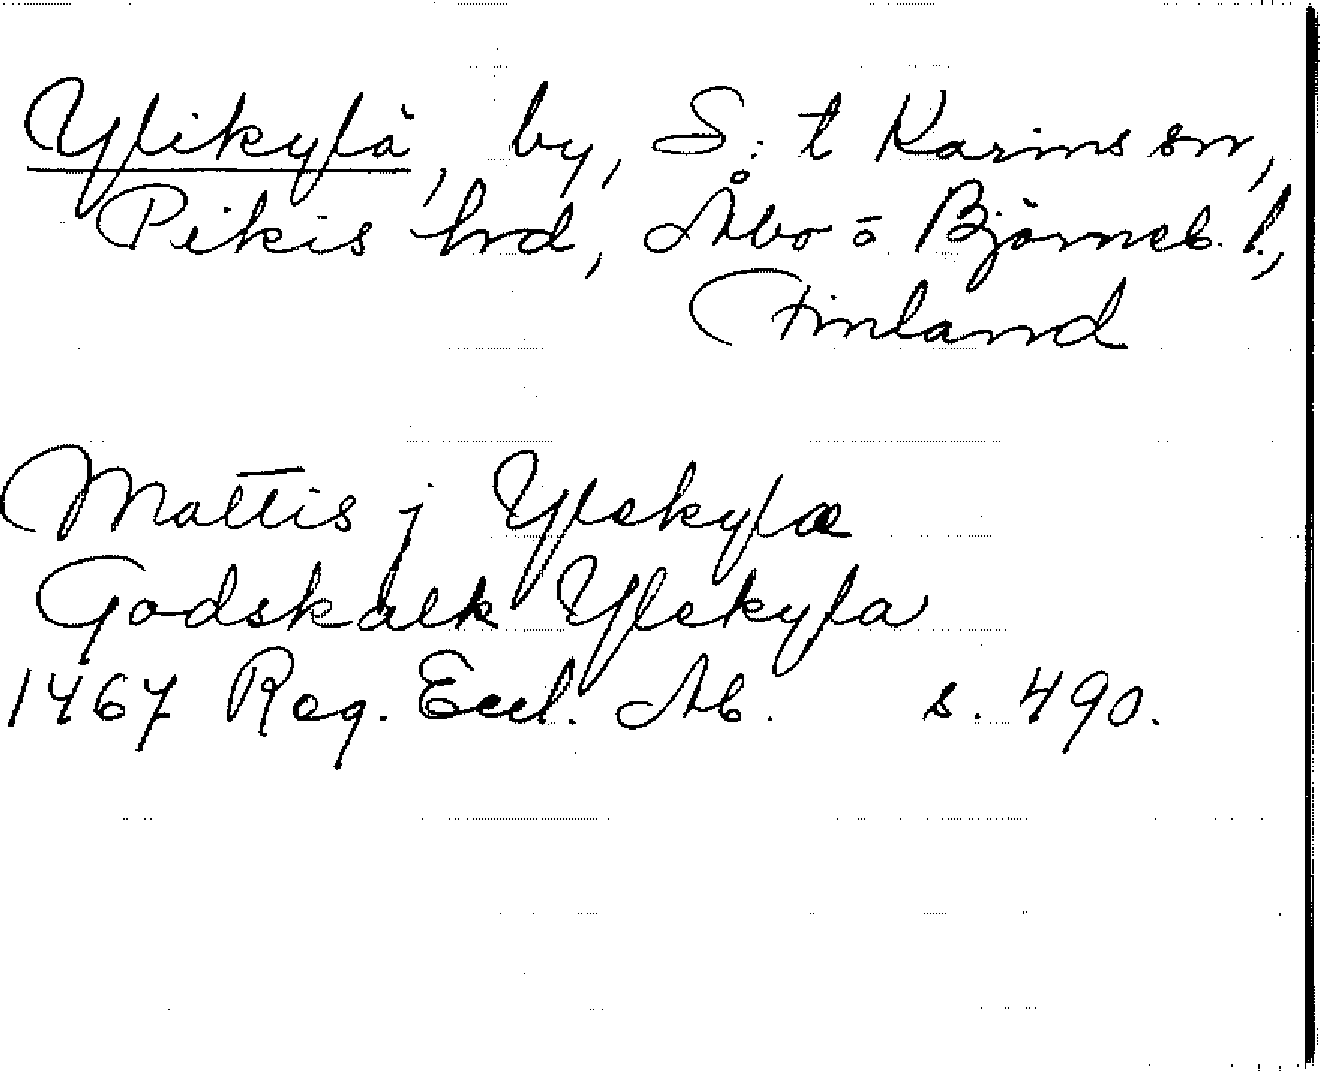 Ylikylä, by, S:t Karins sn,
Pikis hrd, Åbo = Björneb. l.,
Finland
Mattis j Yleskylæ
Godskalk Yleskyla
1467 Reg. Eccl. Ab. s. 490.